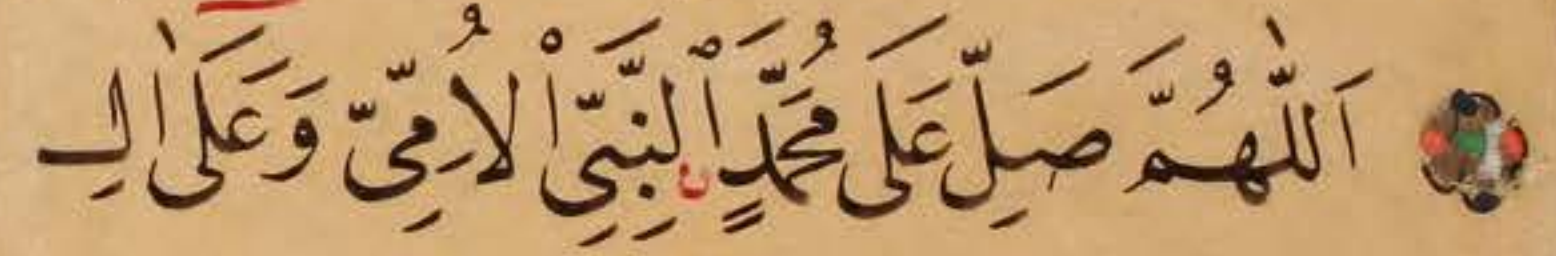 اَللّٰهُمَّ صَلِّ عَلَى مُحَمَّدٍ اۨلنَّبِيِّ اْلاُمِّيِّ وَعَلٰى اٰلِ